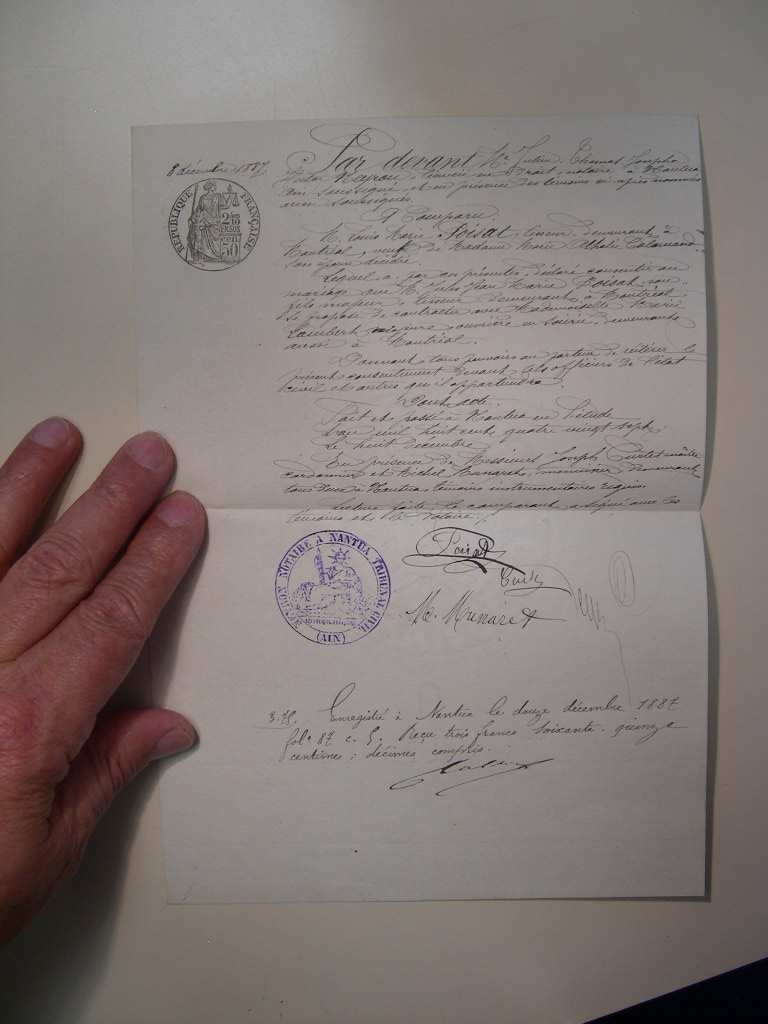 8 décembre 1887
RÉPUBLIQUE FRANÇAISE
2/10 EN SUS
50 cen
Par devant Me Julien Thomas Joseph
licencié en Droit, notaire à Nantua
Ain soussigné et en présence des témoins ci-après nommés
aussi soussignés.
A Comparu:
M. Louis Marie Poisat, demeurant à
Montréal, veuf de Madame Marie
son épouse décédée.
Lequel a, par ces présentes, déclaré consentir au
mariage que M. Jules Jean Marie Poisat, son
fils majeur, demeurant à Montréal
se propose de contracter avec Mademoiselle Marie
Lambert, majeure, ouvrière en soierie, demeurant
aussi à Montréal.
Donnant tous pouvoirs au porteur de réitérer le
présent consentement devant tels officiers de l'état
civil et autres qu'il appartiendra.
Dont acte.
Fait et passé à Nantua en l'étude
L'an mil huit cent quatre vingt sept,
Le huit Décembre
En présence de Messieurs Joseph maître
cordonnier et Michel Munaret, menuisier, demeurant
tous deux à Nantua, témoins instrumentaires requis.
Lecture faite, le comparant a signé avec les
témoins et le Notaire.
NOTAIRE A NANTUA TRIBUNAL CIVIL
(AIN)
Poisat
Munaret
3.75. Enregistré à Nantua le douze décembre 1887
fol° 87 c. 5. Reçu trois francs soixante quinze
centimes; décimes compris.